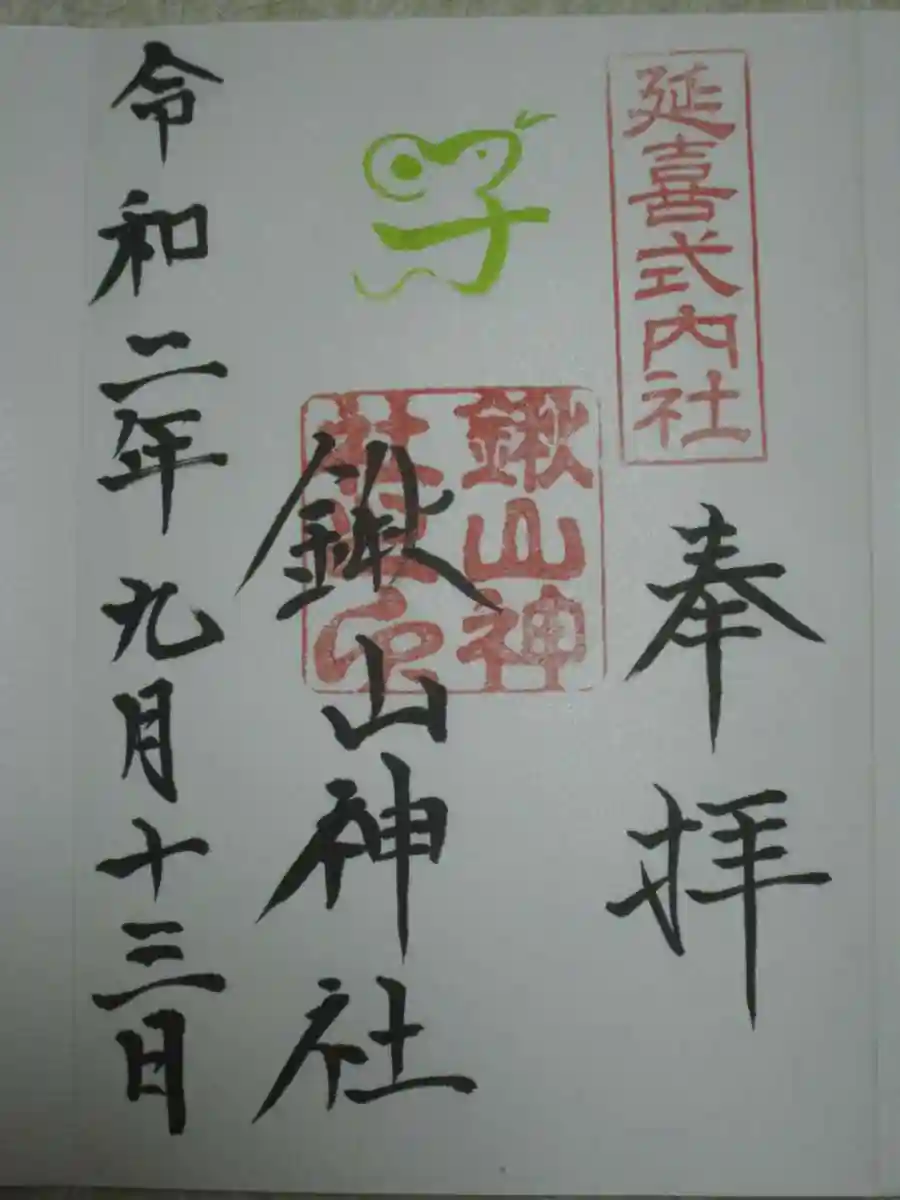 延喜式内社
奉拝
子
鍬山神
社之印
鍬山神社
令和二年九月十三日